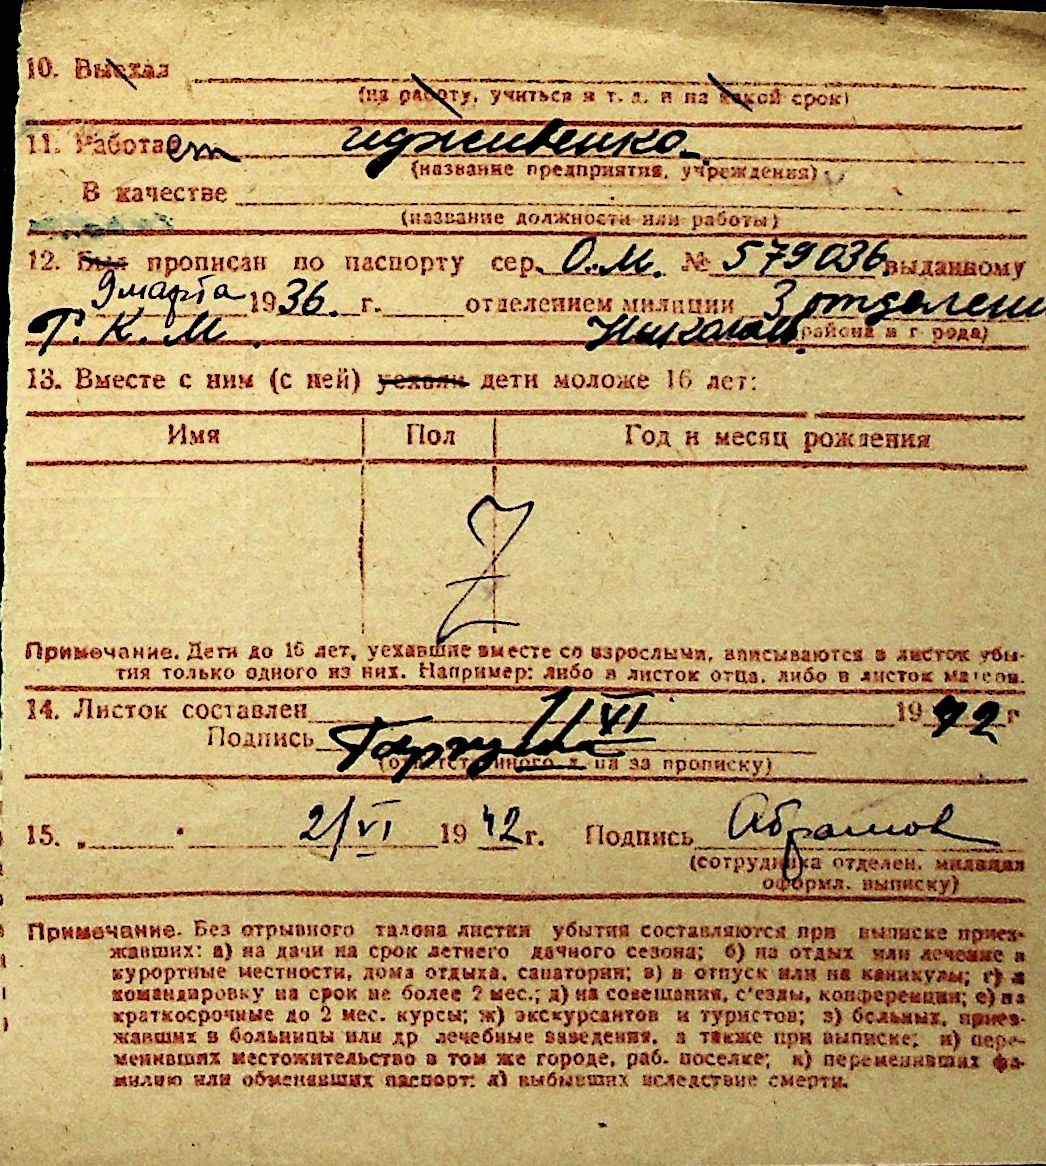 10. Выехал
(на работу, учиться и т. д. и на какой срок)
11. Работает иждивенка
(название предприятия, учреждения)
В качестве
(название должности или работы)
12. Был прописан по паспорту сер. О.М. № 579036 выданному
9 марта 1936. г. отделением милиции 3 отделени
Г. К. М. (района и города)
13. Вместе с ним (с ней) уехали дети моложе 16 лет:
Имя Пол Год и месяц рождения
Z
Примечание. Дети до 16 лет, уехавшие вместе со взрослыми, вписываются в листок убы-
тия только одного из них. Например: либо в листок отца, либо в листок матери.
14. Листок составлен 1/VI 1942 г
Подпись
(ответственного л. на за прописку)
15. 2/VI 1942 г. Подпись Абрамов
(сотрудника отделен. милиции
оформл. выписку)
Примечание. Без отрывного талона листки убытия составляются при выписке приез-
жавших: а) на дачи на срок летнего дачного сезона; б) на отдых или лечение в
курортные местности, дома отдыха, санатории; в) в отпуск или на каникулы; г) в
командировку на срок не более 2 мес.; д) на совещания, с'езды, конференции; е) на
краткосрочные до 2 мес. курсы; ж) экскурсантов и туристов; з) больных, приез-
жавших в больницы или др лечебные заведения, а также при выписке; и) пере-
менивших местожительство в том же городе, раб. поселке; к) переменивших фа-
милию или обменявших паспорт; л) выбывших вследствие смерти.